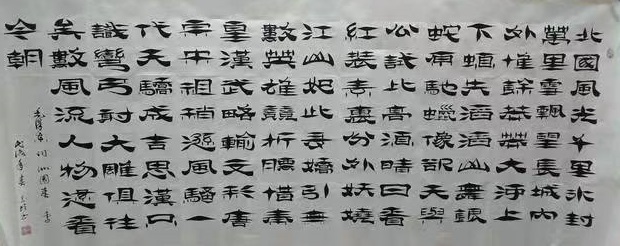 北國風光千里冰封
萬里雪飄望長城內
外惟餘莽莽大河上
下頓失滔滔山舞銀
蛇原馳蠟像欲天與
公試比高須晴日看
紅裝素裹分外妖嬈
江山如此多嬌引無
數英雄競折腰惜秦
皇漢武略輸文彩唐
宗宋祖稍遜風騷一
代天驕成吉思漢只
識彎弓射大雕俱往
矣數風流人物還看
今朝
毛澤東詞沁園春雪